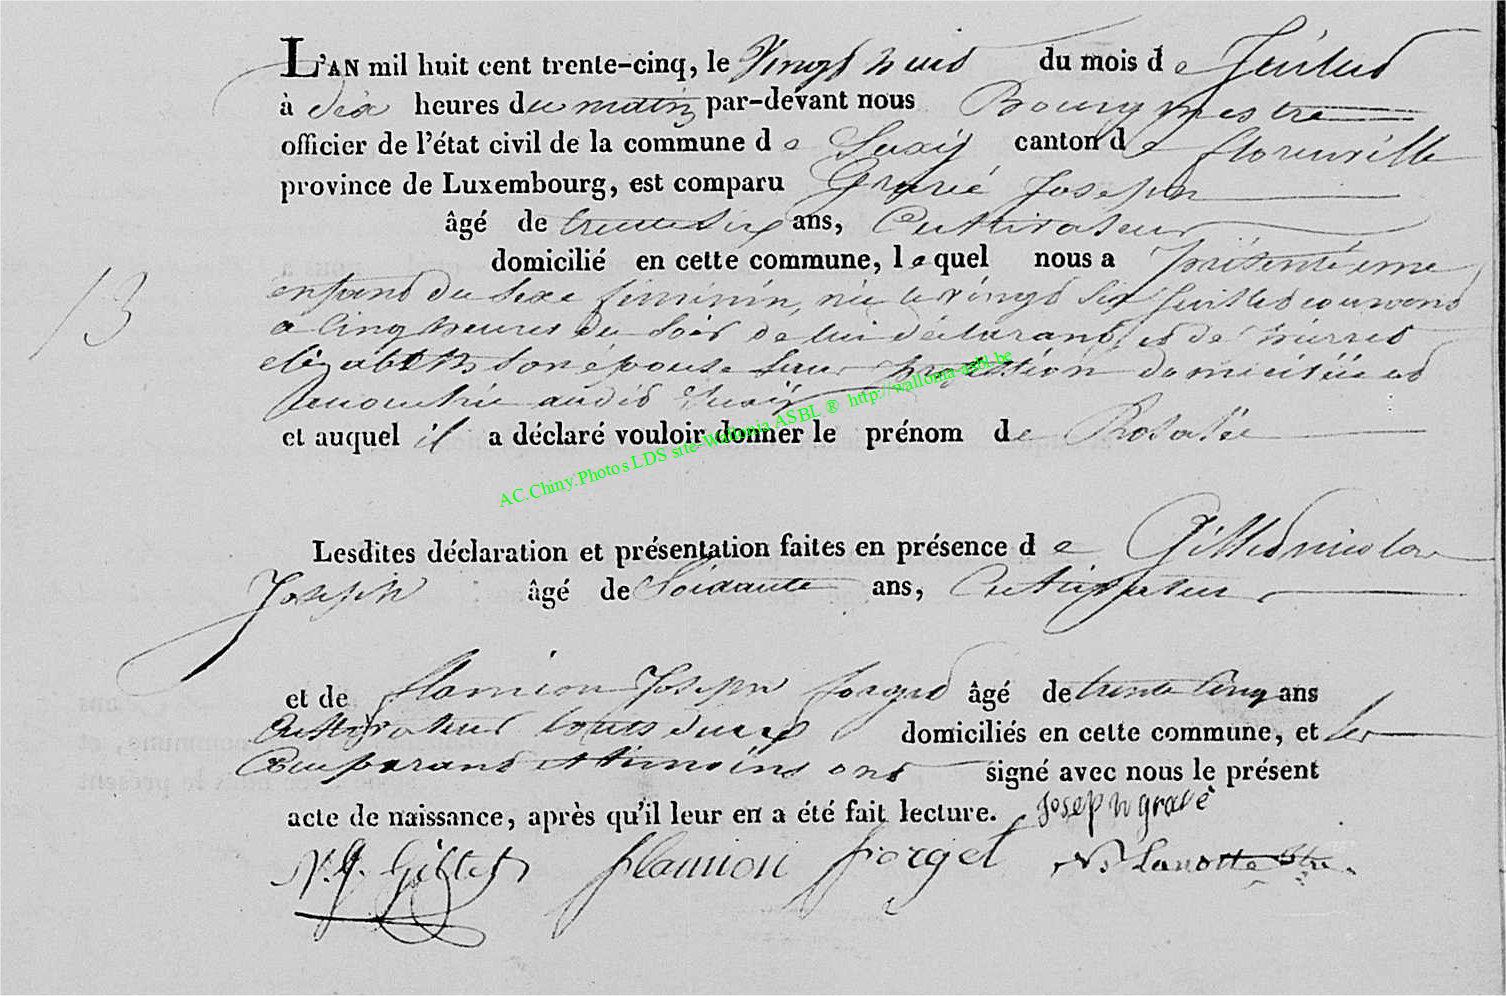 L'AN mil huit cent trente-cinq, le Vingt huit du mois de Juillet
à dix heures du matin par-devant nous Bourgmestre
officier de l'état civil de la commune de Suxÿ canton de florenville
province de Luxembourg, est comparu Gravé Joseph
âgé de trente six ans, Cultivateur
domicilié en cette commune, lequel nous a présenté une
enfant du sexe féminin, née le vingt six juillet courant
a cinq heures du soir de lui déclarant, et de pierret
elizabeth son épouse sans profession domiciliée et
audit Suxÿ
et auquel il a déclaré vouloir donner le prénom de Rosalie
13
AC.Chiny.Photos LDS site-Wallonia ASBL ® http://wallonia-asbl.be
Lesdites déclaration et présentation faites en présence de Gillet nicolas
Joseph âgé de Soixante ans, Cultivateur
et de flamion Joseph forget âgé de trente cinq ans
Cultivateur touts deux domiciliés en cette commune, et les
Comparant et témoins ont signé avec nous le présent
acte de naissance, après qu'il leur en a été fait lecture. Joseph gravé
N. J. Gillet flamion forget Lanotte